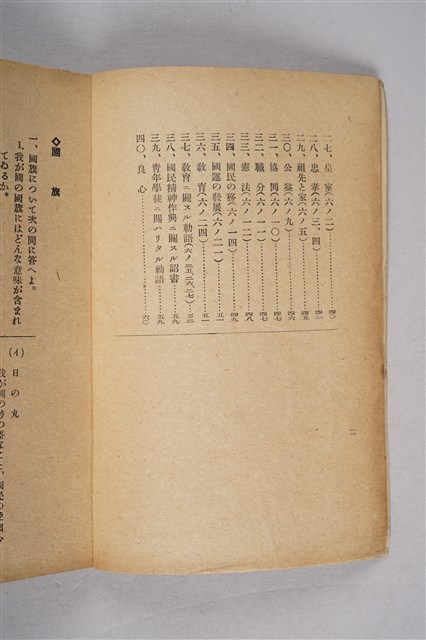 二七、皇室(六ノ二)……四〇
二八、忠孝(六ノ三、四)……四二
二九、祖先と家(六ノ五)……四五
三〇、公益(六ノ九)……四六
三一、協同(六ノ一〇)……四七
三二、職分(六ノ一一)……四七
三三、憲法(六ノ一二)……四八
三四、國民の務(六ノ一四)……四九
三五、國運の發展(六ノ二一)……五一
三六、敎育(六ノ二四)……五一
三七、敎育ニ關スル勅語(六ノ二五、二六、二七)……五三
三八、國民精神作興ニ關スル詔書……五九
三九、靑年學徒ニ賜ハリタル勅語……五九
四〇、良心……六〇
二
◇國旗
一、國旗について次の問に答へよ。
1.我が國の國旗にはどんな意味が含まれ
てゐるか。
(イ)日の丸